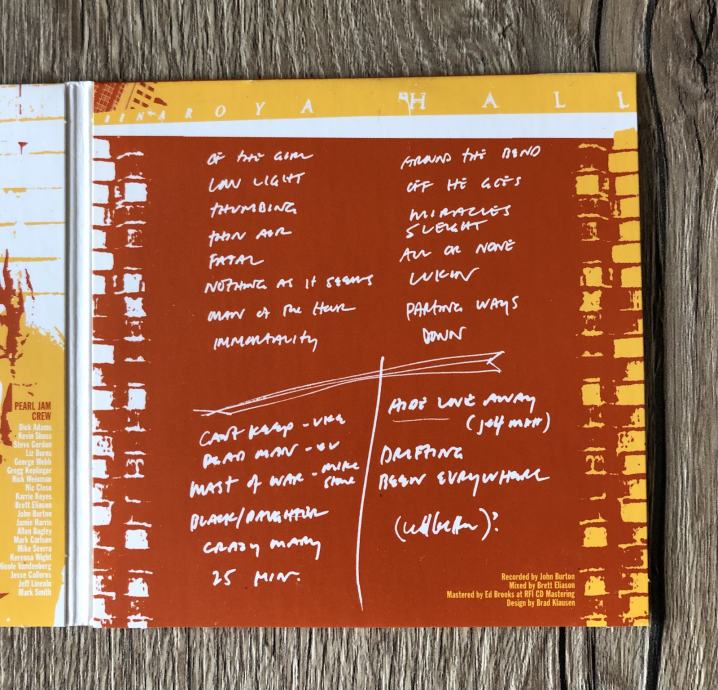 BENAROYA HALL
OF THE GIRL
LOW LIGHT
THUMBING
THIN AIR
FATAL
NOTHING AS IT SEEMS
MAN OF THE HOUR
IMMORTALITY
AROUND THE BEND
OFF HE GOES
MIRACLES
SLEIGHT
ALL OR NONE
LUKIN
PARTING WAYS
DOWN
CAN'T KEEP - UKE
DEAD MAN - EV
MAST OF WAR - MIKE
STONE
BLACK/DAUGHTER
CRAZY MARY
25 MIN.
HIDE LOVE AWAY
DRIFTING
BEEN EVRYWHERE
PEARL JAM
CREW
Dick Adams
Kevin Shuss
Steve Gordon
Liz Burns
George Webb
Gregg Keplinger
Rick Weisman
Nic Close
Karrie Keyes
Brett Eliason
John Burton
Jamie Harris
Allan Bagley
Mark Carlson
Mike Severa
Kerensa Wight
Nicole Vandenberg
Jesse Calleros
Jeff Lincoln
Mark Smith
Recorded by John Burton
Mixed by Brett Eliason
Mastered by Ed Brooks at RFI CD Mastering
Design by Brad Klausen